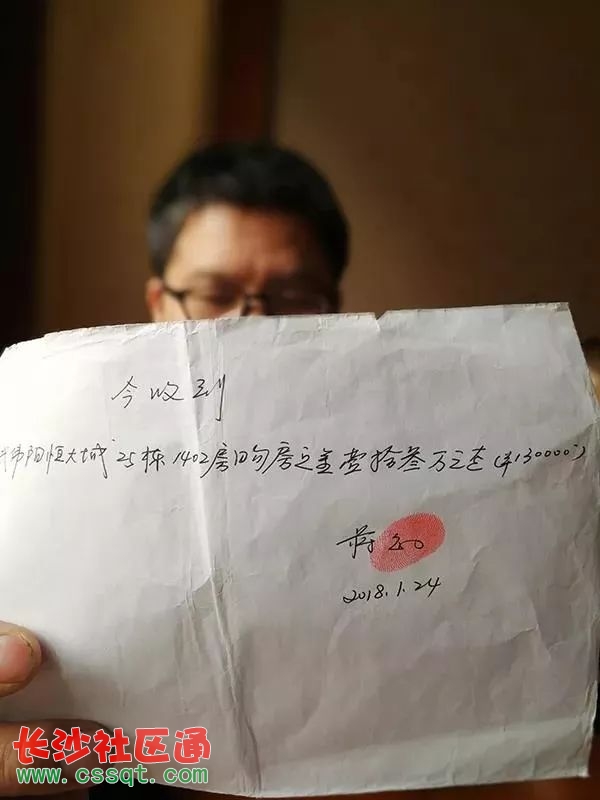 今收到
伟阳恒大城25栋1402房购房定金壹拾叁万元整(¥130000)
蒋
2018.1.24
长沙社区通
www.cssqt.com